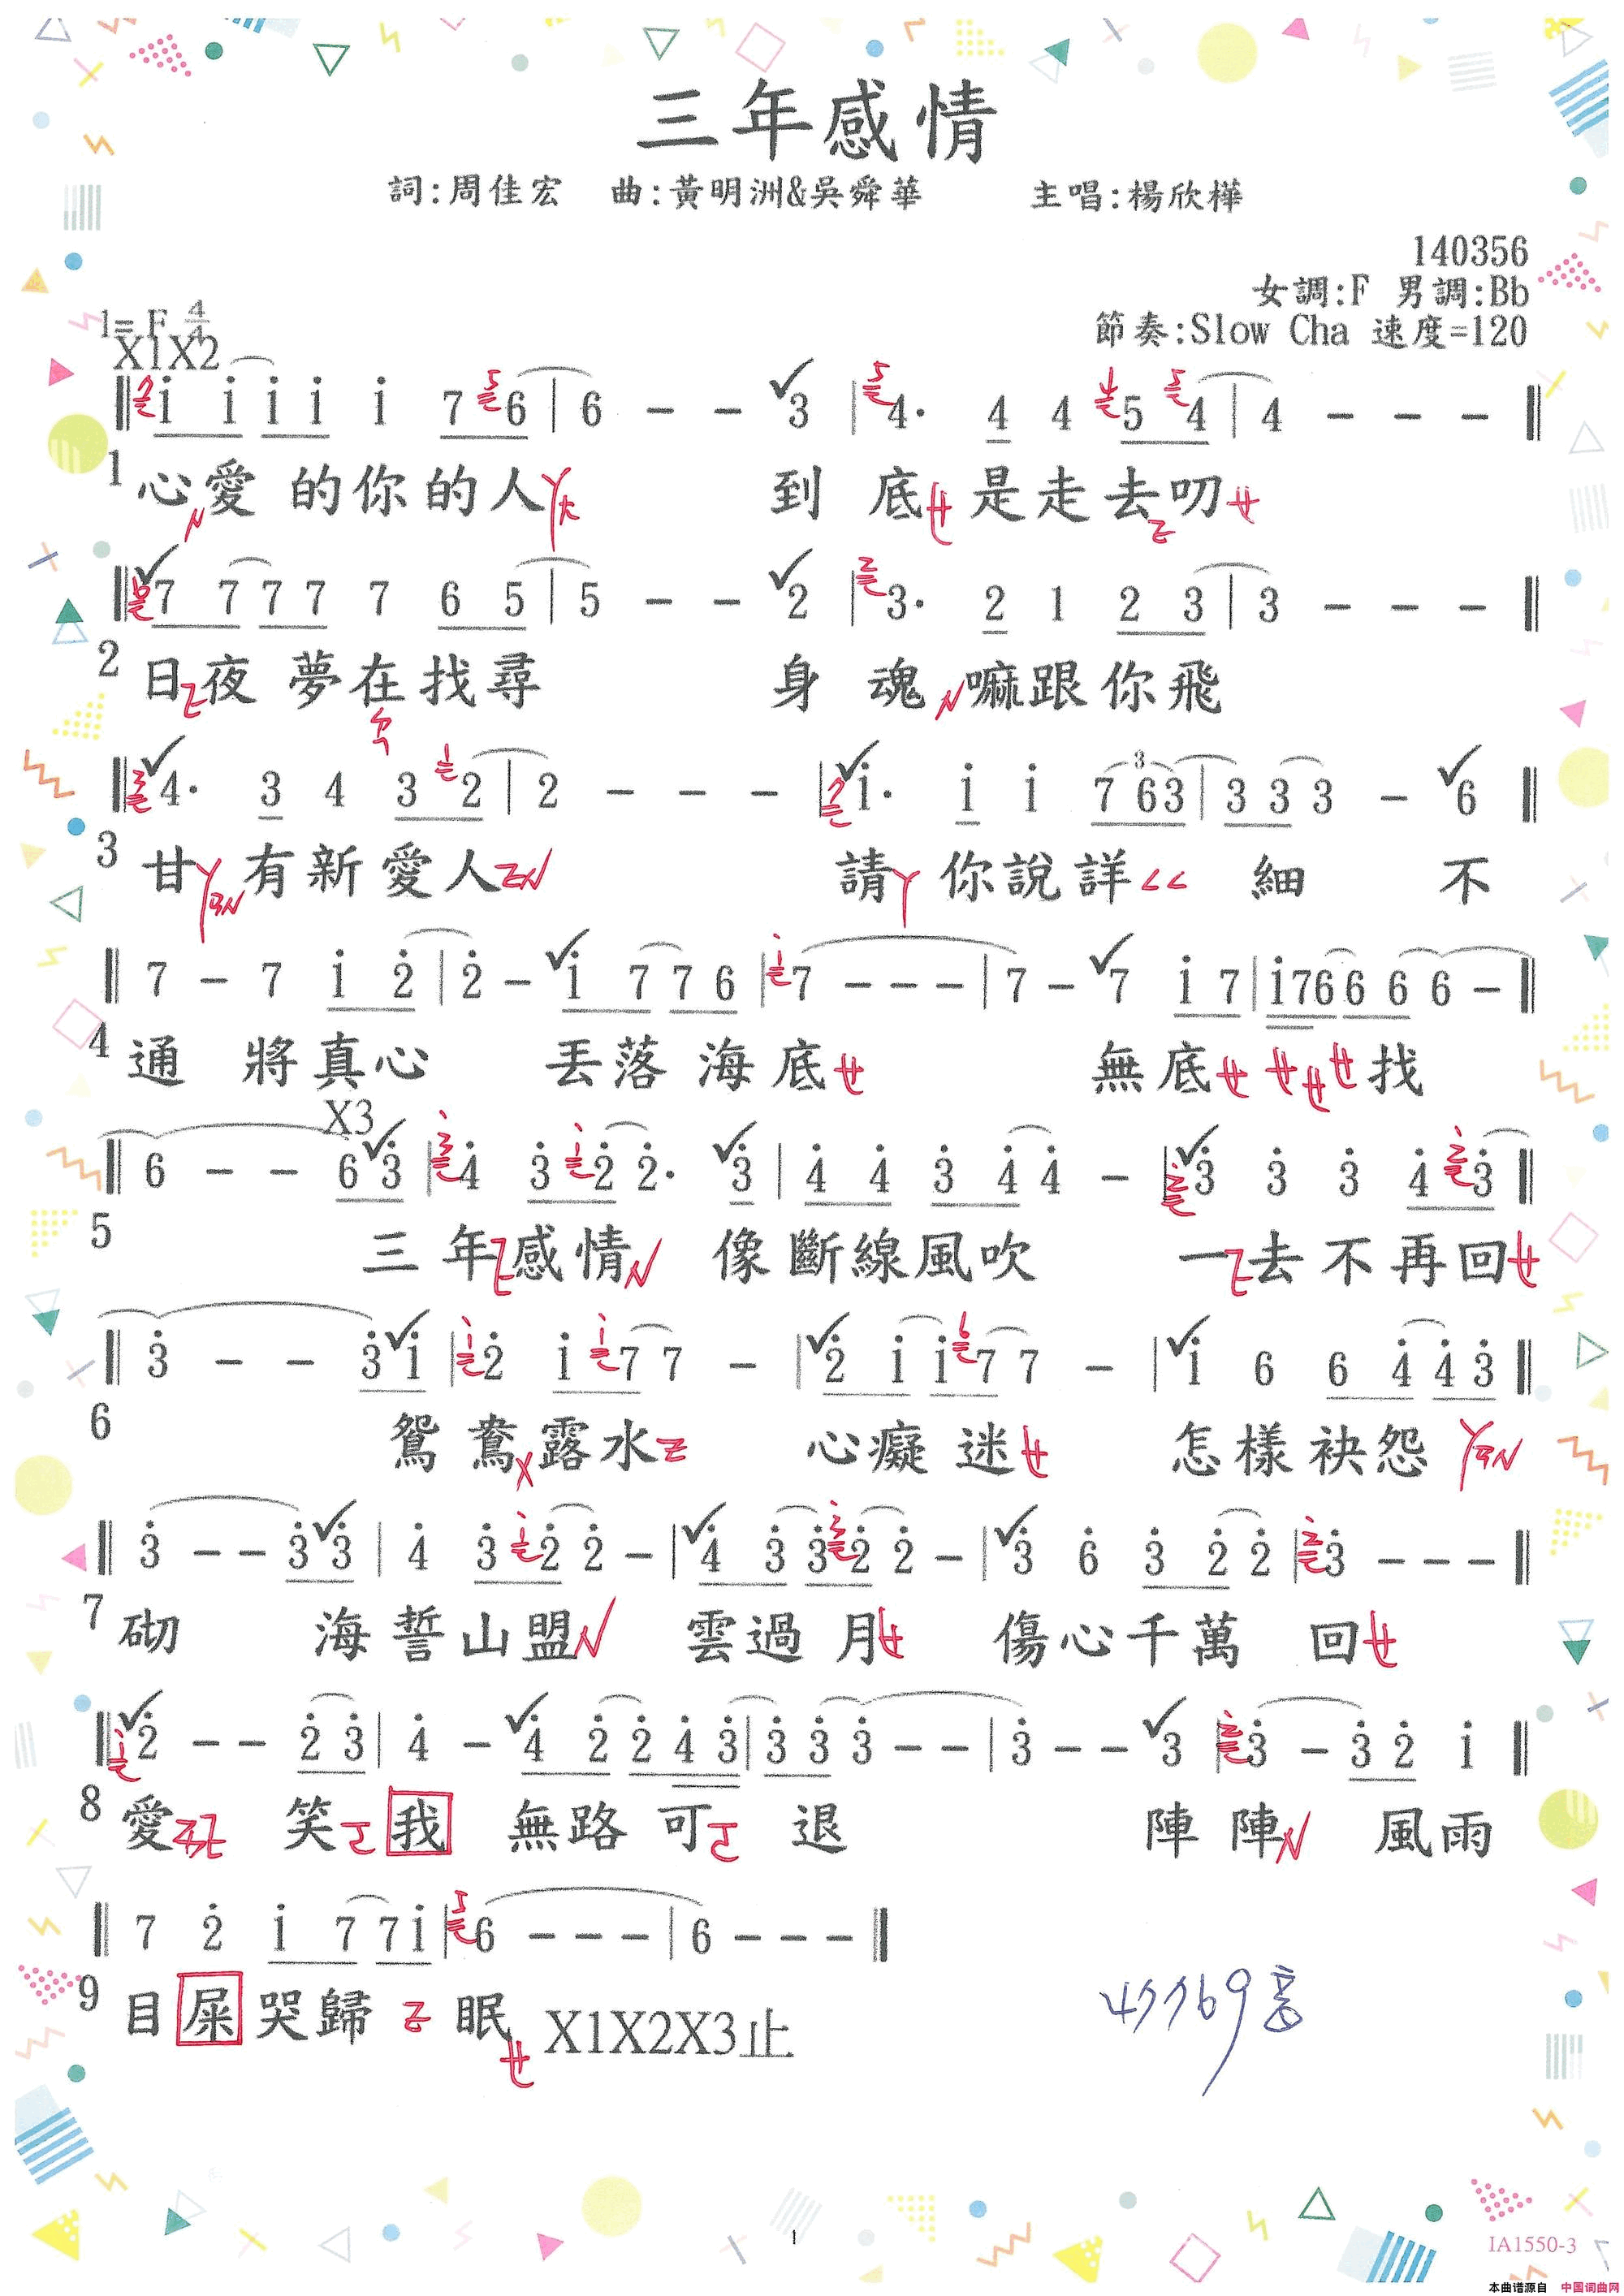 三年感情
詞:周佳宏 曲:黃明洲&吳舜華 主唱:楊欣樺
140356
女調:F 男調:Bb
節奏:Slow Cha 速度=120
1=F 4/4
X1X2
i i i i i 7 6 | 6 - - 3 | 4. 4 4 5 4 | 4 - - -
1 心愛 的你的人 到 底 是走去叨
7 7 7 7 7 6 5 | 5 - - 2 | 3. 2 1 2 3 | 3 - - -
2 日夜 夢在找尋 身 魂 嘛跟你飛
4. 3 4 3 2 | 2 - - - | i. i i 7 6 3 | 3 3 3 - 6
3 甘 有新愛人 請 你說詳 細 不
7 - 7 i 2 | 2 - i 7 7 6 | 7 - - - | 7 - 7 i 7 | i 7 6 6 6 6 -
4 通 將真心 丟落海底 無底 找
X3
6 - - 6 3 | 4 3 2 2. 3 | 4 4 3 4 4 - | 3 3 3 4 3
5 三 年感情 像斷線風吹 一去不再回
3 - - 3 i | 2 i 7 7 - | 2 i i 7 7 - | i 6 6 4 4 3
6 鴛鴦露水 心癡迷 怎樣袂怨
3 - - 3 3 | 4 3 2 2 - | 4 3 3 2 2 - | 3 6 3 2 2 | 3 - - -
7 砌 海誓山盟 雲過月 傷心千萬 回
2 - - 2 3 | 4 - 4 2 2 4 3 | 3 3 3 - - | 3 - - 3 | 3 - 3 2 i
8 愛 笑 我 無路可 退 陣陣 風雨
7 2 i 7 7 i | 6 - - - | 6 - - -
9 目屎哭歸 眠 X1X2X3止
1
IA1550-3
本曲谱源自 中国词曲网